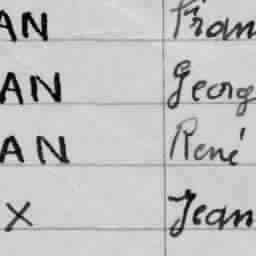 AN Fran
AN Georg
AN René
X Jean